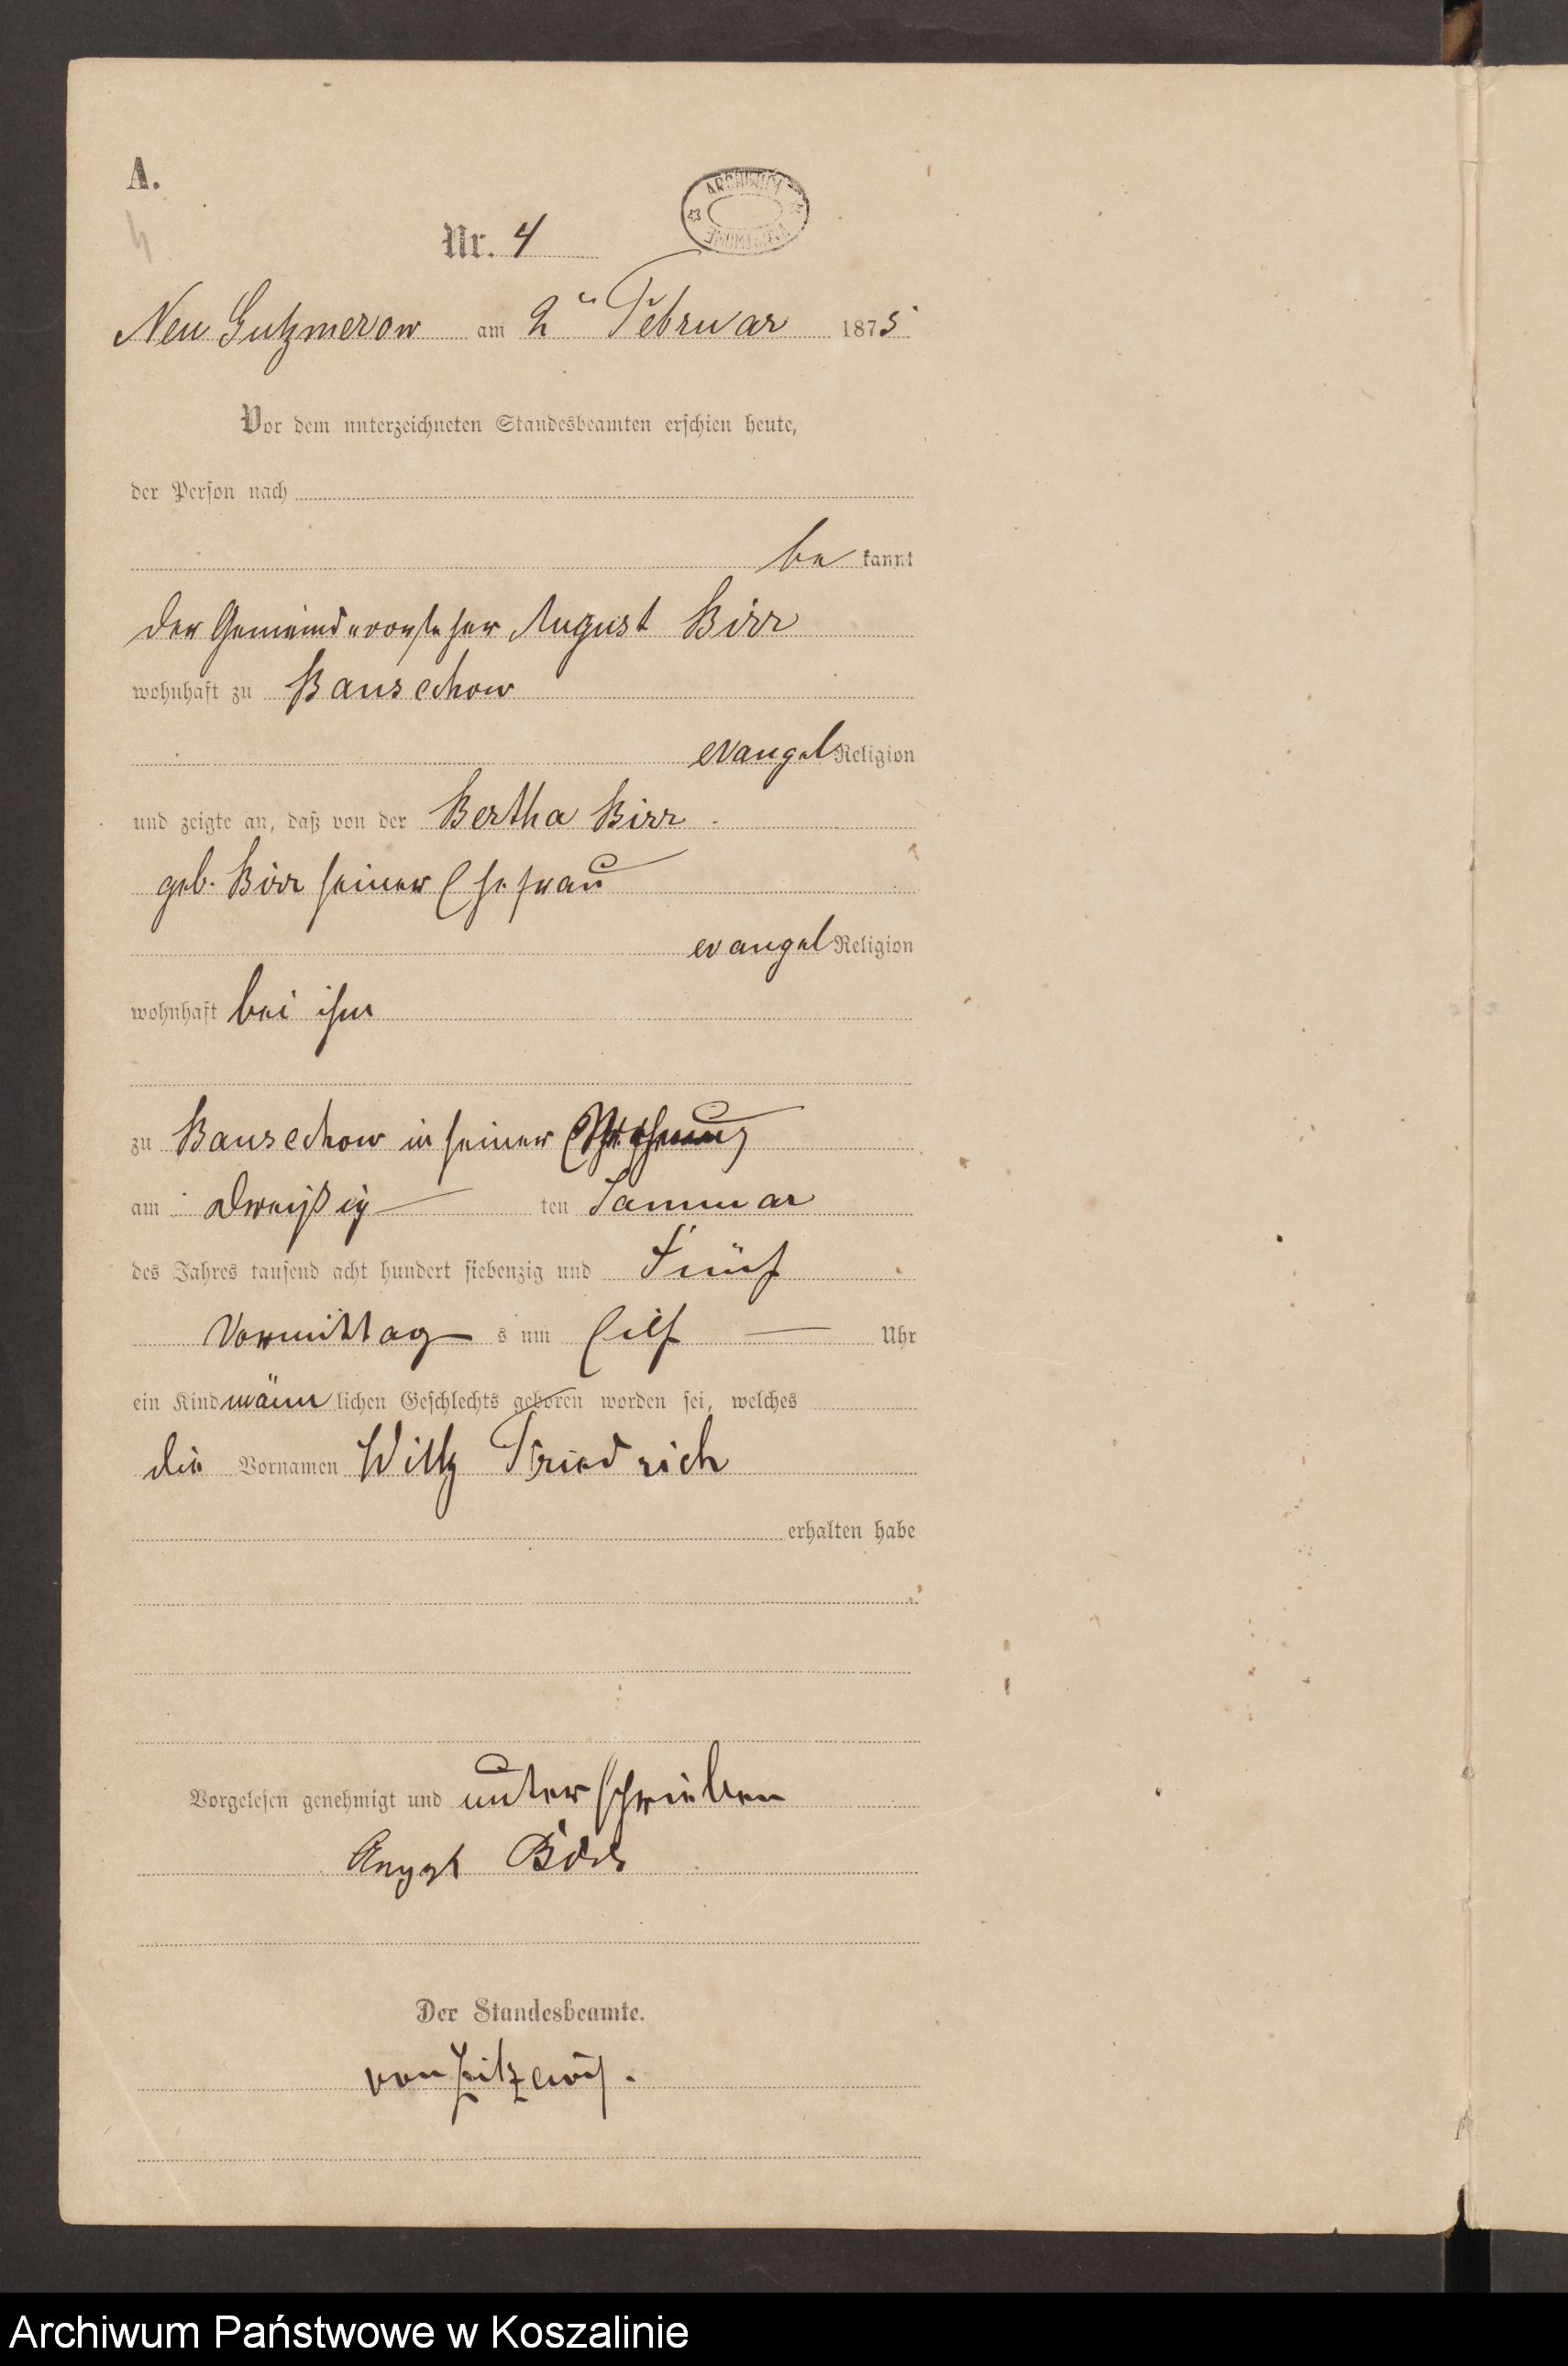 A.
4
Nr. 4
ARCHIWUM PAŃSTWOWE
Neu Gutzmerow am 2ten Februar 1875
Vor dem unterzeichneten Standesbeamten erschien heute,
der Person nach
be kannt
der Gemeindevorsteher August Birr
wohnhaft zu Banschow
evangel Religion
und zeigte an, daß von der Bertha Birr
geb. Birr seiner Ehefrau
evangel Religion
wohnhaft bei ihm
zu Banschow in seiner Wohnung
am dreißig ten Januar
des Jahres tausend acht hundert siebenzig und Fünf
Vormittag s um Eilf Uhr
ein Kind männ lichen Geschlechts geboren worden sei, welches
die Vornamen Willy Friedrich
erhalten habe
Vorgelesen genehmigt und unterschrieben
August Birr
Der Standesbeamte.
von Zitzewitz.
Archiwum Państwowe w Koszalinie